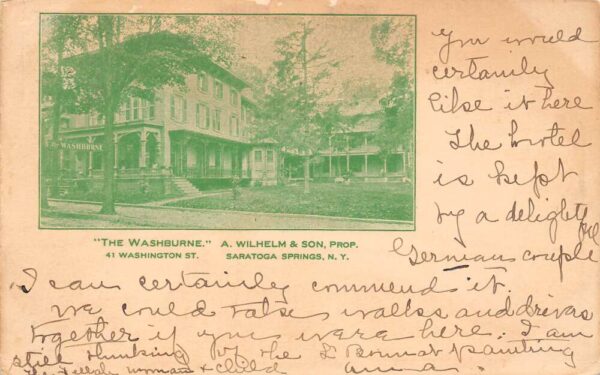 The WASHBURNE
"THE WASHBURNE." A. WILHELM & SON, PROP.
41 WASHINGTON ST. SARATOGA SPRINGS, N. Y.
You would
certainly
like it here
The hotel
is kept
by a delightful
German couple
I can certainly commend it.
We could take walks and drives
together if you were here. I am
still thinking of the painting
woman & child